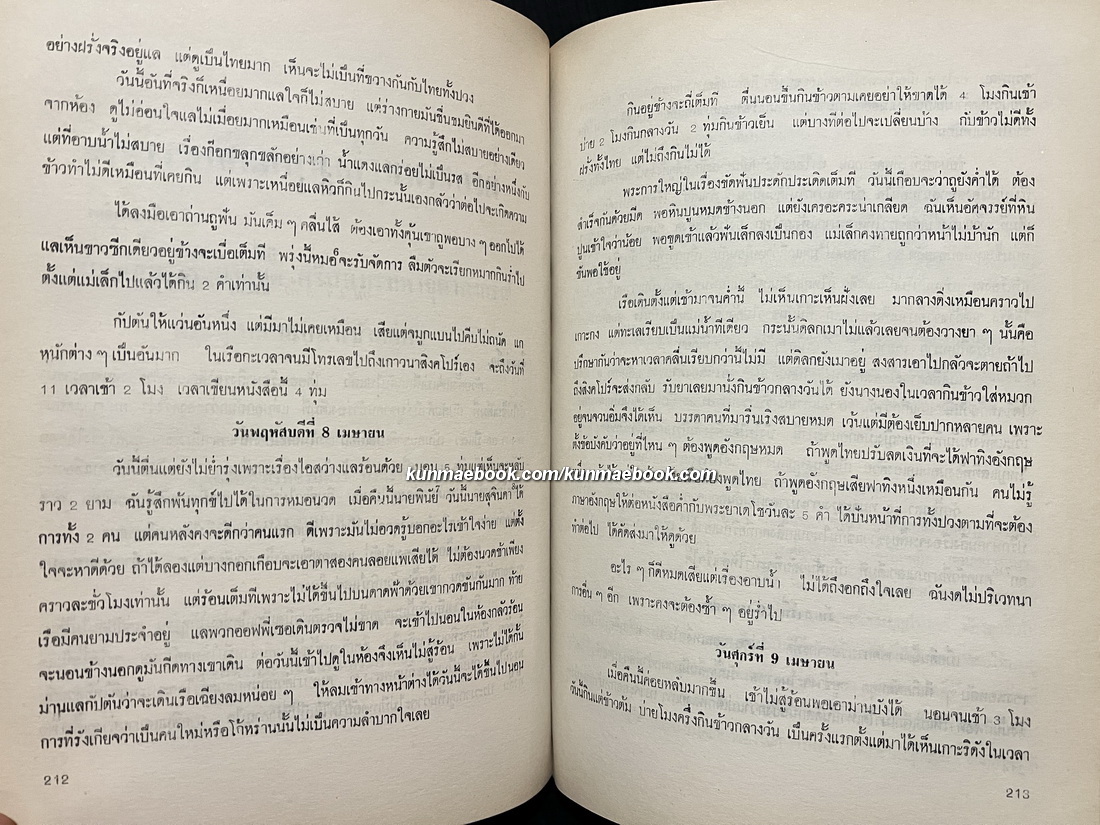 อย่างฝรั่งจริงอยู่แล แต่ดูเป็นไทยมาก เห็นจะไม่เป็นที่ขวางกันกับไทยทั้งปวง
วันนี้อันที่จริงก็เหนื่อยมากแลใจก็ไม่สบาย แต่ร่างกายมันชื่นชมยินดีที่ได้ออกมา
จากห้อง ดูไม่อ่อนใจแลไม่เมื่อยมากเหมือนเช่นที่เป็นทุกวัน ความรู้สึกไม่สบายอย่างเดียว
แต่ที่อาบน้ำไม่สบาย เรื่องก๊อกขลุกขลักอย่างเก่า น้ำแดงแลกร่อยไม่เป็นรส อีกอย่างหนึ่งกับ
ข้าวทำไม่ดีเหมือนที่เคยกิน แต่เพราะเหนื่อยแลหิวก็กินไปกระนั้นเองกลัวว่าต่อไปจะเกิดความ
ได้ลงมือเอาถ่านถูฟัน มันเค็ม ๆ คลื่นไส้ ต้องเอาทั้งคุ้นเขาถูพอบาง ๆ ออกไปได้
แลเห็นขาวซีกเดียวอยู่ข้างจะเบื่อเต็มที พรุ่งนี้หมอจะรับจัดการ ลืมตัวจะเรียกหมากกินร่ำไป
ตั้งแต่แม่เล็กไปแล้วได้กิน 2 คำเท่านั้น
กัปตันให้แว่นอันหนึ่ง แต่มีมาไม่เคยเหมือน เสียแต่จมูกแบนไปคีบไม่ถนัด แก
หนักต่าง ๆ เป็นอันมาก ในเรือกะเวลาจนมีโทรเลขไปถึงเกาวนาสิงคโปร์เอง จะถึงวันที่
11 เวลาเช้า 2 โมง เวลาเขียนหนังสือนี้ 4 ทุ่ม
วันพฤหัสบดีที่ 8 เมษายน
วันนี้ตื่นแต่ยังไม่ย่ำรุ่งเพราะเรื่องไอสว่างแลร้อนด้วย นอน 5 ทุ่มแต่เห็นจะหลับ
ราว 2 ยาม ฉันรู้สึกพ้นทุกข์ไปได้ในการหมอนวด เมื่อคืนนี้นายพินัย วันนี้นายสุจินดาได้
การทั้ง 2 คน แต่คนหลังคงจะดีกว่าคนแรก ดีเพราะมันไม่อวดรู้บอกอะไรเข้าใจง่าย แต่ตั้ง
ใจจะหาดีด้วย ถ้าได้ลองแต่บางกอกเกือบจะเอาตาสองคนลอยแพเสียได้ ไม่ต้องนวดช้าเพียง
คราวละชั่วโมงเท่านั้น แต่ร้อนเต็มทีเพราะไม่ได้ขึ้นไปบนดาดฟ้าด้วยเขากวดขันกันมาก ท้าย
เรือมีคนยามประจำอยู่ แลพวกออฟฟี่เซอเดินตรวจไม่ขาด จะเข้าไปนอนในห้องกลัวร้อน
จะนอนข้างนอกดูมันกีดทางเขาเดิน ต่อวันนี้เข้าไปดูในห้องจึงเห็นไม่สู้ร้อน เพราะไม่ได้กั้น
ม่านแลกัปตันว่าจะเดินเรือเฉียงลมหน่อย ๆ ให้ลมเข้าทางหน้าต่างได้วันนี้จะได้ขึ้นไปนอน
การที่รังเกียจว่าเป็นคนใหม่หรือโก้หร่านนั้นไม่เป็นความลำบากใจเลย
212
กินอยู่ข้างจะถี่เต็มที ตื่นนอนขึ้นกินข้าวตามเคยอย่าให้ขาดได้ 4 โมงกินเช้า
บ่าย 2 โมงกินกลางวัน 2 ทุ่มกินข้าวเย็น แต่บางทีต่อไปจะเปลี่ยนบ้าง กับข้าวไม่ดีทั้ง
ฝรั่งทั้งไทย แต่ไม่ถึงกินไม่ได้
พระการใหญ่ในเรื่องขัดฟันประดักประเดิดเต็มที วันนี้เกือบจะว่าถูยังค่ำได้ ต้อง
สำเร็จกันด้วยมีด พอหินปูนหมดข้างนอก แต่ยังเครอะคระน่าเกลียด ฉันเห็นอัศจรรย์ที่หิน
ปูนเข้าใจว่าน้อย พอขูดเข้าแล้วฟันเล็กลงเป็นกอง แม่เล็กคงทายถูกว่าหน้าไม่บ้านัก แต่ก็
ขันพอใช้อยู่
เรือเดินตั้งแต่เช้ามาจนค่ำนี้ ไม่เห็นเกาะเห็นฝั่งเลย มากลางดิ่งเหมือนคราวไป
เกาะกง แต่ทะเลเรียบเป็นแม่น้ำทีเดียว กระนั้นดิลกเมาไม่แล้วเลยจนต้องวางยา ๆ นั้นคือ
ปรึกษากันว่าจะหาเวลาคลื่นเรียบกว่านี้ไม่มี แต่ดิลกยังเมาอยู่ สงสารเอาไปกลัวจะตายถ้าไป
ถึงสิงคโปร์จะส่งกลับ รับยาเลยมานั่งกินข้าวกลางวันได้ ยังนางนองในเวลากินข้าวใส่หมวก
อยู่จนจวนอิ่มจึงได้เห็น บรรดาคนที่มารื่นเริงสบายหมด เว้นแต่มีต้องเย็บปากหลายคน เพราะ
ตั้งข้อบังคับว่าอยู่ที่ไหน ๆ ต้องพูดอังกฤษหมด ถ้าพูดไทยปรับลดเงินที่จะได้ฟาทิงอังกฤษ
พูดไทย ถ้าพูดอังกฤษเสียฟาทิงหนึ่งเหมือนกัน คนไม่รู้
ภาษาอังกฤษให้ต่อหนังสือค่ำกับพระยาเดโชวันละ 5 คำ ได้ปันหน้าที่การทั้งปวงตามที่จะต้อง
ทำต่อไป ได้คัดส่งมาให้ดูด้วย
อะไร ๆ ก็ดีหมดเสียแต่เรื่องอาบน้ำ ไม่ได้ถึงอกถึงใจเลย ฉันงดไม่ปริเวทนา
การอื่น ๆ อีก เพราะคงจะต้องซ้ำ ๆ อยู่ร่ำไป
วันศุกร์ที่ 9 เมษายน
เมื่อคืนนี้ค่อยหลับมากขึ้น เช้าไม่สู้ร้อนพอเอาม่านบังได้ นอนจนเช้า 3 โมง
วันนี้กินแต่ข้าวต้ม บ่ายโมงครึ่งกินข้าวกลางวัน เป็นครั้งแรกตั้งแต่มาได้เห็นเกาะริดังในเวลา
213
kunmaebook.com/kunmaebook.com